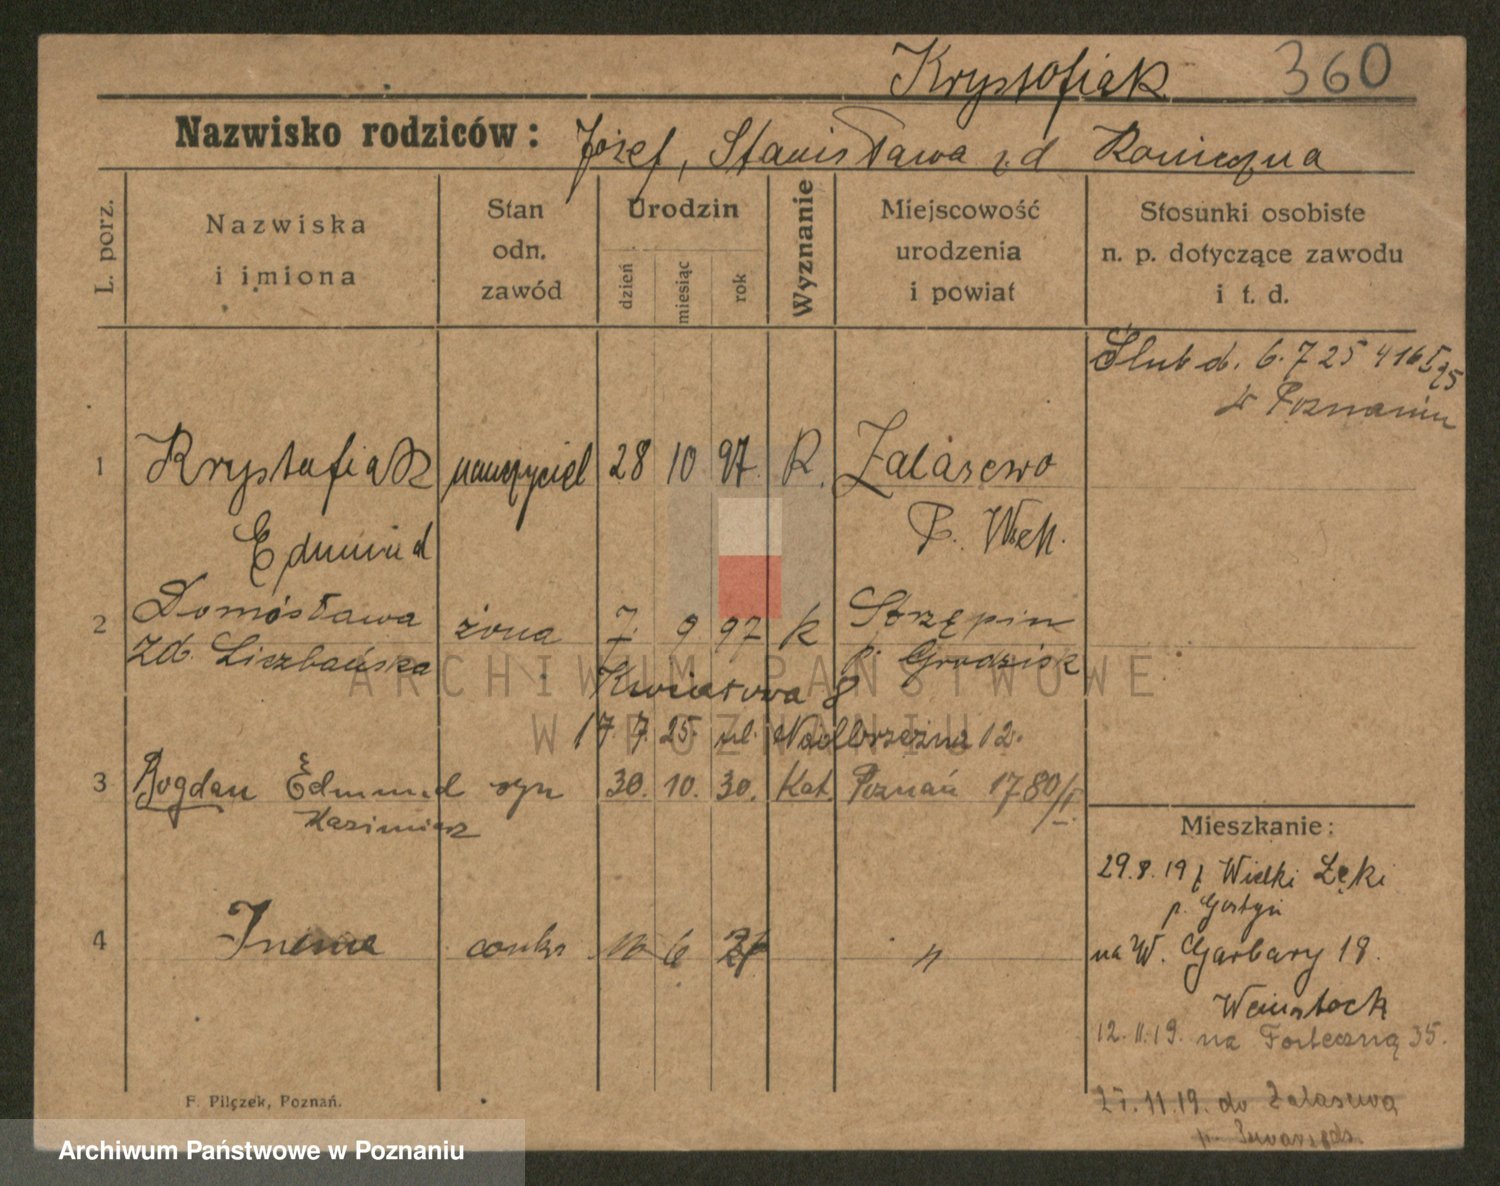 Krystofiak 360
Nazwisko rodziców: Józef, Stanisława z d Konieczna
L. porz.
Nazwiska
i imiona
Stan
odn.
zawód
Urodzin
dzień
miesiąc
rok
Wyznanie
Miejscowość
urodzenia
i powiat
Stosunki osobiste
n. p. dotyczące zawodu
i t. d.
Ślub d. 6. 7 25
w Poznaniu
1 Krystofiak nauczyciel 28 10 97. R. Zalasewo
Edmund P. Wlkp.
2 Domosława żona 7 9 97 k Strzępin
zd. Liszbańska p. Grodzisk
Kwiatowa 8
17 7 25. ul. Nadbrzeżna 12.
3 Bogdan Edmund syn 30. 10. 30. Kat. Poznań 1780/I.
Kazimierz
4 Irena córka 6 "
Mieszkanie:
29.8.19 z Wielki Łęki
p. Gostyń
na W. Garbary 18.
Weinstock
12.11.19. na Forteczną 35.
11.19. do Zalasewa
p.
F. Pilczek, Poznań.
ARCHIWUM PAŃSTWOWE
W POZNANIU
Archiwum Państwowe w Poznaniu